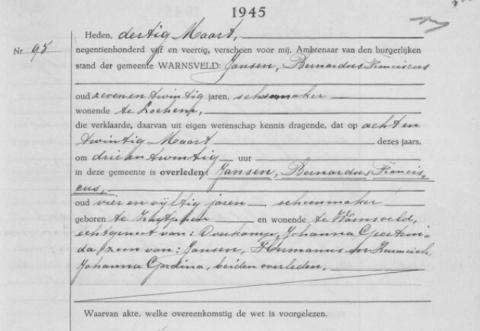 1945
Heden, dertig Maart,
negentienhonderd vijf en veertig, verscheen voor mij, Ambtenaar van den burgerlijken
Nr 95
stand der gemeente WARNSVELD: Jansen, Bernardus Franciscus
oud zevenentwintig jaren, schoenmaker
wonende te Lochem,
die verklaarde, daarvan uit eigen wetenschap kennis dragende, dat op achten
twintig Maart dezes jaars,
om drieentwintig uur
in deze gemeente is overleden: Jansen, Bernardus Francis-
cus,
oud vier en vijftig jaren schoenmaker
geboren te Zutphen en wonende te Warnsveld,
echtgenoot van: Johanna Geertrui-
da, zoon van: Jansen, Hermanus en
Johanna Gerdina, beiden overleden,
Waarvan akte, welke overeenkomstig de wet is voorgelezen.